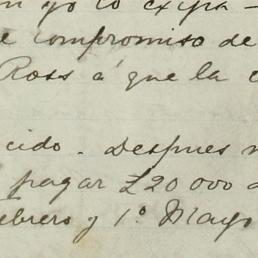 yo lo exija -
e compromiso de
Ross á que la
cido. Despues
pagar £20 000
ebrero y 1º Mayo